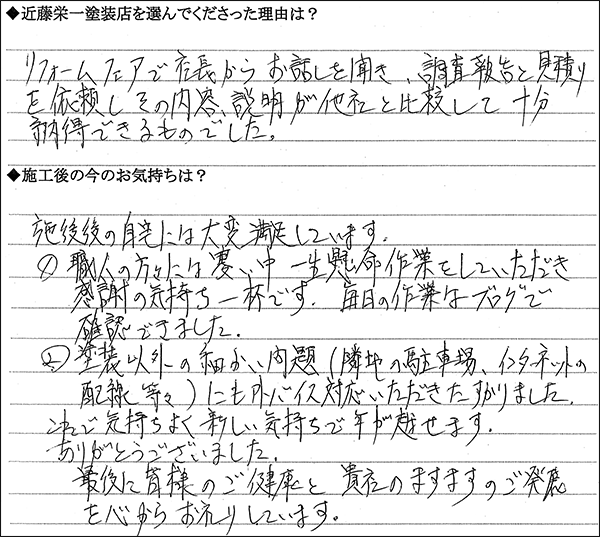 ◆近藤栄一塗装店を選んでくださった理由は？
リフォームフェアで店長からお話しを聞き、調査報告と見積り
を依頼しその内容、説明が他社と比較して十分
納得できるものでした。
◆施工後の今のお気持ちは？
施後後の自宅には大変満足しています。
① 職人の方々には寒い中一生懸命作業をしていただき
感謝の気持ち一杯です。毎日の作業はブログで
確認できました。
② 塗装以外の細かい問題（隣地の駐車場、インターネットの
配線等々）にもアドバイス対応いただきたすかりました。
これで気持ちよく新しい気持ちで年が越せます。
ありがとうございました。
最後に皆様のご健康と貴社のますますのご発展
を心からお祈りしています。